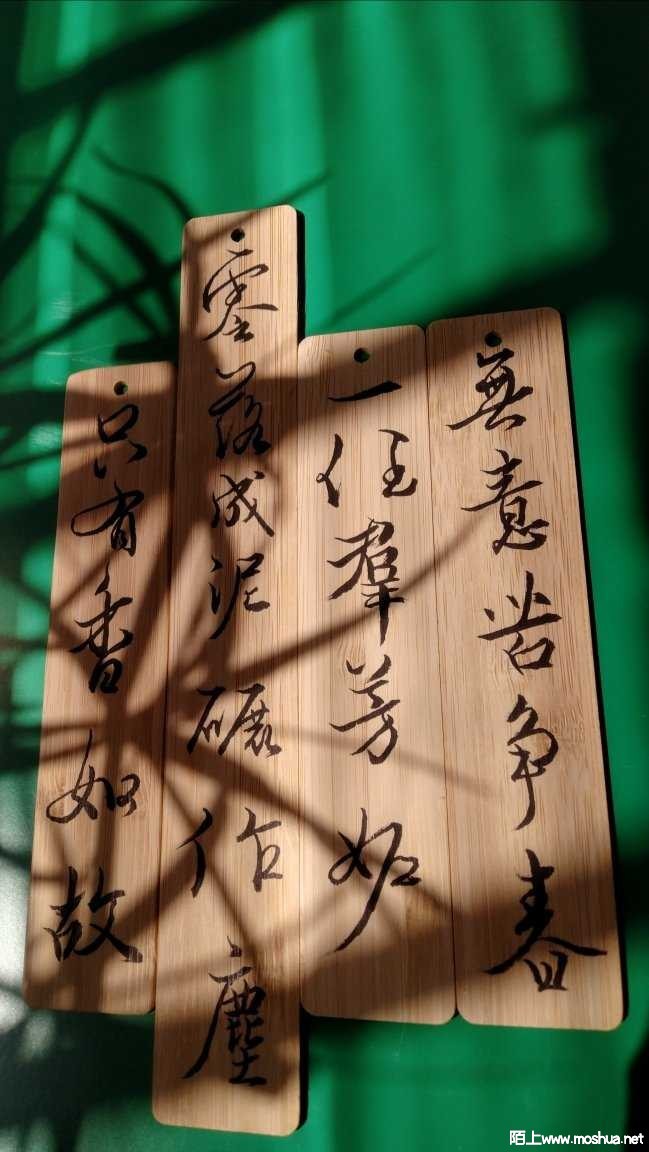 無意苦争春
一任羣芳妒
零落成泥碾作塵
只有香如故
陌上www.moshua.net